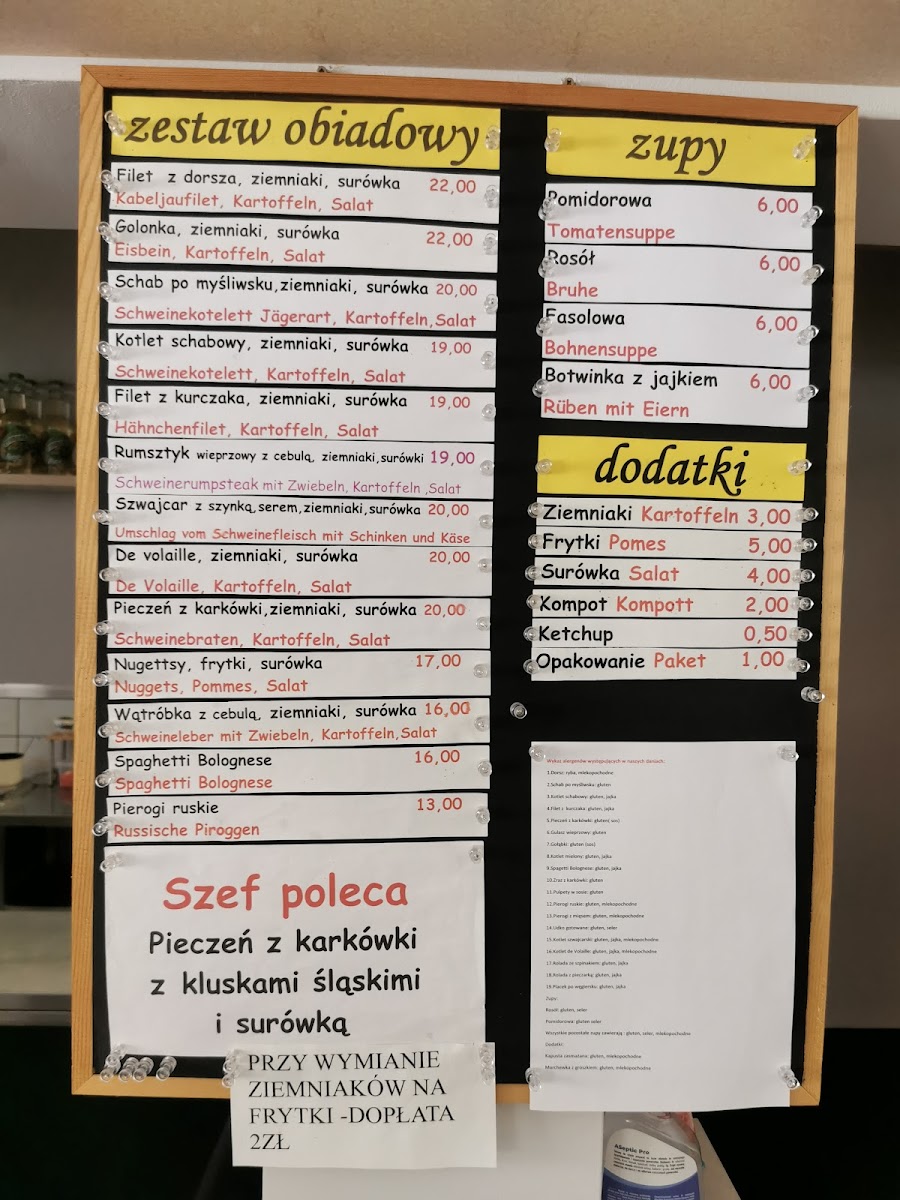 zestaw obiadowy
Filet z dorsza, ziemniaki, surówka 22,00
Kabeljaufilet, Kartoffeln, Salat
Golonka, ziemniaki, surówka 22,00
Eisbein, Kartoffeln, Salat
Schab po myśliwsku,ziemniaki, surówka 20,00
Schweinekotelett Jägerart, Kartoffeln,Salat
Kotlet schabowy, ziemniaki, surówka 19,00
Schweinekotelett, Kartoffeln, Salat
Filet z kurczaka, ziemniaki, surówka 19,00
Hähnchenfilet, Kartoffeln, Salat
Rumsztyk wieprzowy z cebulą, ziemniaki,surówki 19,00
Schweinerumpsteak mit Zwiebeln, Kartoffeln ,Salat
Szwajcar z szynką,serem,ziemniaki,surówka 20,00
Umschlag vom Schweinefleisch mit Schinken und Käse
De volaille, ziemniaki, surówka 20,00
De Volaille, Kartoffeln, Salat
Pieczeń z karkówki,ziemniaki, surówka 20,00
Schweinebraten, Kartoffeln, Salat
Nugettsy, frytki, surówka 17,00
Nuggets, Pommes, Salat
Wątróbka z cebulą, ziemniaki, surówka 16,00
Schweineleber mit Zwiebeln, Kartoffeln,Salat
Spaghetti Bolognese 16,00
Spaghetti Bolognese
Pierogi ruskie 13,00
Russische Piroggen
Szef poleca
Pieczeń z karkówki
z kluskami śląskimi
i surówką
PRZY WYMIANIE
ZIEMNIAKÓW NA
FRYTKI -DOPŁATA
2ZŁ
zupy
Pomidorowa 6,00
Tomatensuppe
Rosół 6,00
Bruhe
Fasolowa 6,00
Bohnensuppe
Botwinka z jajkiem 6,00
Rüben mit Eiern
dodatki
Ziemniaki Kartoffeln 3,00
Frytki Pomes 5,00
Surówka Salat 4,00
Kompot Kompott 2,00
Ketchup 0,50
Opakowanie Paket 1,00
Wykaz alergenów występujących w naszych daniach:
1.Dorsz: ryba, mlekopochodne
2.Schab po myśliwsku: gluten
3.Kotlet schabowy: gluten, jajka
4.Filet z kurczaka: gluten, jajka
5.Pieczeń z karkówki: gluten( sos)
6.Gulasz wieprzowy: gluten
7.Gołąbki: gluten (sos)
8.Kotlet mielony: gluten, jajka
9.Spagetti Bolognese: gluten, jajka
10.Zraz z karkówki: gluten
11.Pulpety w sosie: gluten
12.Pierogi ruskie: gluten, mlekopochodne
13.Pierogi z mięsem: gluten, mlekopochodne
14.Udko gotowane: gluten, seler
15.Kotlet szwajcarski: gluten, jajka, mlekopochodne
16.Kotlet de Volaille: gluten, jajka, mlekopochodne
17.Rolada ze szpinakiem: gluten, jajka
18.Rolada z pieczarką: gluten, jajka
19.Placek po węgiersku: gluten, jajka
Zupy:
Rosół: gluten, seler
Pomidorowa: gluten seler
Wszystkie pozostałe zupy zawierają : gluten, seler, mlekopochodne
Dodatki:
Kapusta zasmażana: gluten, mlekopochodne
Marchewka z groszkiem: gluten, mlekopochodne
ASeptic Pro